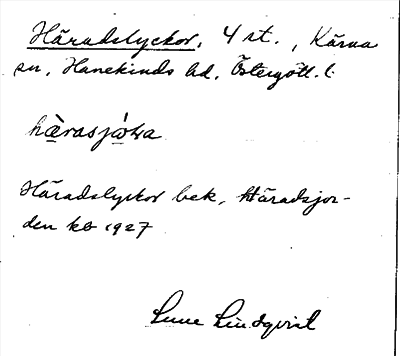 Häradslyckor, 4 st., Kärna
sn, Hanekinds hd, Östergötl. l.
Häradslyckor bek, Häradsjor-
den kb 1927
Sune Lindqvist